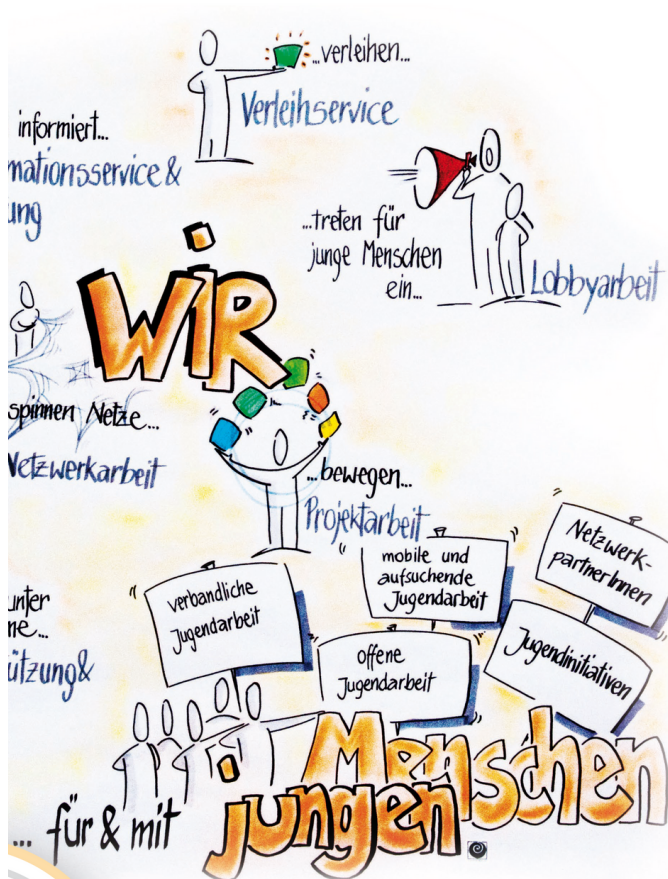 ...verleihen...
Verleihservice
informiert...
mationsservice &
ung
...treten für
junge Menschen
ein...
Lobbyarbeit
WiR
spinnen Netze...
Netzwerkarbeit
...bewegen...
Projektarbeit
unter
me...
ützung&
verbandliche
Jugendarbeit
mobile und
aufsuchende
Jugendarbeit
offene
Jugendarbeit
Netzwerk-
partnerInnen
Jugendinitiativen
... für & mit
jungen
Menschen